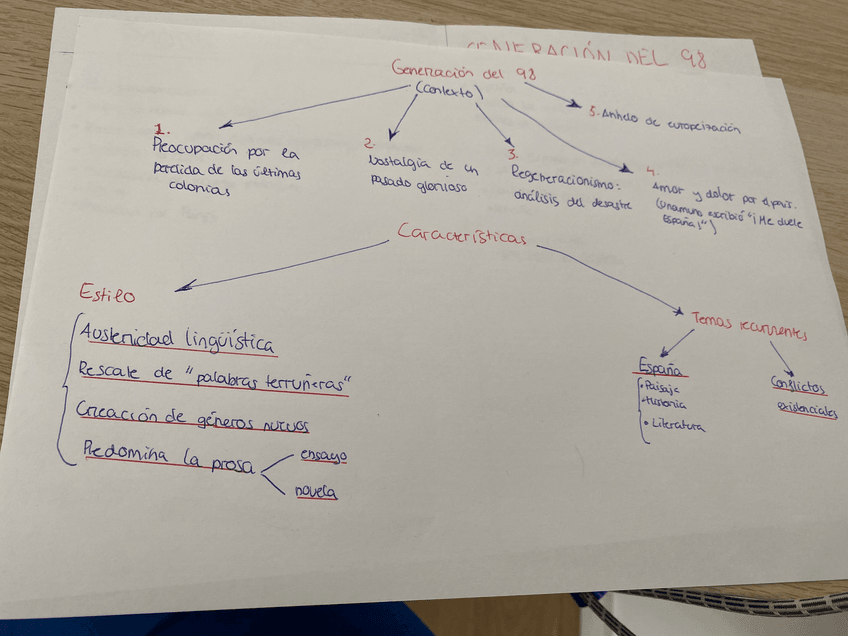 GENERACIÓN DEL 98
Generación del 98
(Contexto)
1.
Preocupación por la
perdida de las últimas
colonias
2.
Nostalgia de un
pasado glorioso
3.
Regeneracionismo:
análisis del desastre
4.
Amor y dolor por el país.
(Unamuno escribió "¡Me duele
España!")
5. Anhelo de europeización
Características
Estilo
Austeridad lingüística
Rescate de "palabras terruñeras"
Creación de géneros nuevos
Predomina la prosa
ensayo
novela
Temas recurrentes
España
• Paisaje
• Historia
• Literatura
Conflictos
existenciales